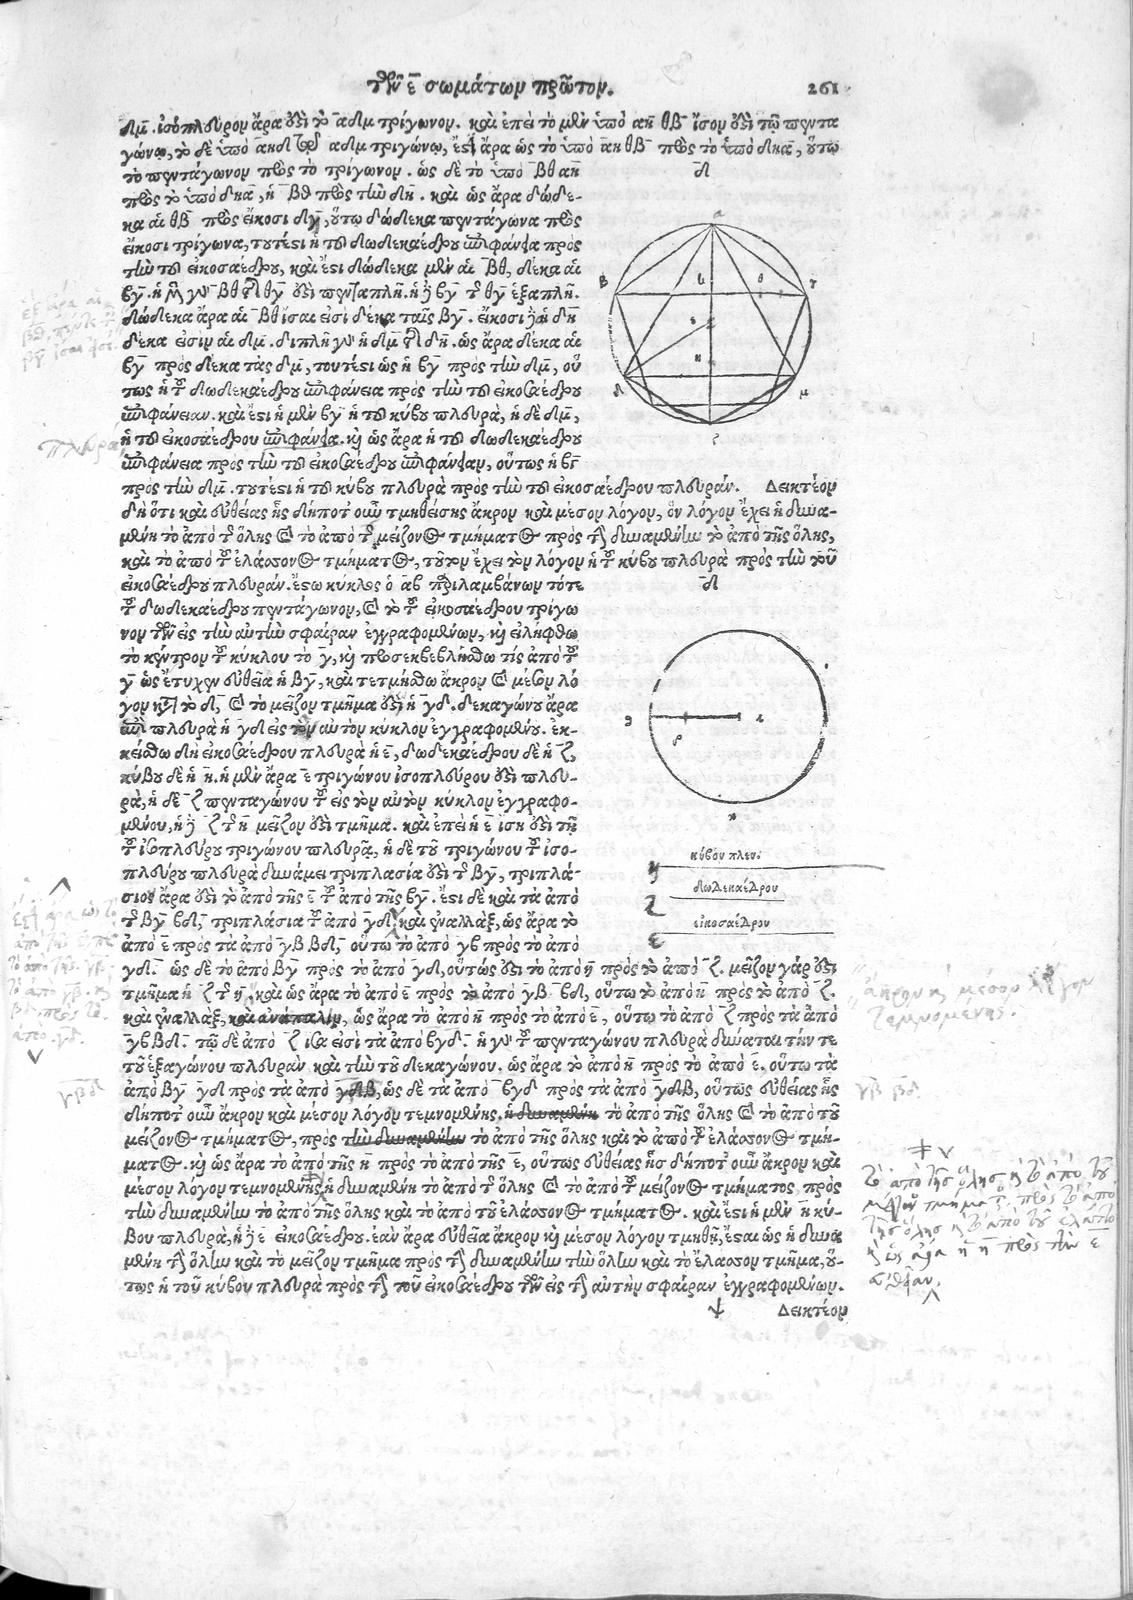 τῶν ε̄ σωμάτων πρῶτον. 261
δμ̄. ἰσόπλευρον ἄρα ἐστὶ τὸ αδμ τρίγωνον. καὶ ἐπεὶ τὸ μὲν ὑπὸ αη̄ θβ̄ ἴσον ἐστὶ τῷ πεντα
γώνῳ, τὸ δὲ ὑπὸ αηδ τῷ αδμ τριγώνῳ, ἔστι ἄρα ὡς τὸ ὑπὸ αη θβ̄ πρὸς τὸ ὑπὸ δηα, οὕτω
τὸ πεντάγωνον πρὸς τὸ τρίγωνον. ὡς δὲ τὸ ὑπὸ βθ αη
πρὸς τὸ ὑπὸ δηα, ἡ βθ πρὸς τὴν δη. καὶ ὡς ἄρα δώδε-
κα αἱ θβ πρὸς εἴκοσι δη, οὕτω δώδεκα πεντάγωνα πρὸς
εἴκοσι τρίγωνα, τουτέστι ἡ τοῦ δωδεκαέδρου ἐπιφάνεια πρὸς
τὴν τοῦ εἰκοσαέδρου, καὶ ἔστι δώδεκα μὲν αἱ βθ, δέκα αἱ
βγ. ἡ μὲν γὰρ βθ τῆς θγ ἐστὶ πενταπλῆ. ἡ δὲ βγ τῆς θγ ἑξαπλῆ.
δώδεκα ἄρα αἱ βθ ἴσαι εἰσὶ δέκα ταῖς βγ. εἴκοσι δὲ δη
δέκα εἰσιν αἱ δμ. διπλῆ γὰρ ἡ δμ τῆς δη. ὡς ἄρα δέκα αἱ
βγ πρὸς δέκα τὰς δμ, τουτέστι ὡς ἡ βγ πρὸς τὴν δμ, οὕ
τως ἡ τοῦ δωδεκαέδρου ἐπιφάνεια πρὸς τὴν τοῦ εἰκοσαέδρου
ἐπιφάνειαν. καὶ ἔστι ἡ μὲν βγ ἡ τοῦ κύβου πλευρὰ, ἡ δὲ δμ,
ἡ τοῦ εἰκοσαέδρου ἐπιφάνεια. καὶ ὡς ἄρα ἡ τοῦ δωδεκαέδρου
ἐπιφάνεια πρὸς τὴν τοῦ εἰκοσαέδρου ἐπιφάνειαν, οὕτως ἡ βγ
πρὸς τὴν δμ. τουτέστι ἡ τοῦ κύβου πλευρὰ πρὸς τὴν τοῦ εἰκοσαέδρου πλευράν. Δεικτέον
δὴ ὅτι καὶ εὐθείας ἧς δήποτ οὖν τμηθείσης ἄκρον καὶ μέσον λόγον, ὃν λόγον ἔχει ἡ δυνα-
μένη τὸ ἀπὸ τῆς ὅλης καὶ τὸ ἀπὸ τοῦ μείζονος τμήματος πρὸς τὴν δυναμένην τὸ ἀπὸ τῆς ὅλης,
καὶ τὸ ἀπὸ τοῦ ἐλάσσονος τμήματος, τοῦτον ἔχει τὸν λόγον ἡ τοῦ κύβου πλευρὰ πρὸς τὴν τοῦ
εἰκοσαέδρου πλευράν. ἔστω κύκλος ὁ αβ περιλαμβάνων τότε
τοῦ δωδεκαέδρου πεντάγωνον, καὶ τὸ τοῦ εἰκοσαέδρου τρίγω
νον τῶν εἰς τὴν αὐτὴν σφαῖραν ἐγγραφομένων, καὶ εἰλήφθω
τὸ κέντρον τοῦ κύκλου τὸ γ, καὶ προσεκβεβλήσθω τις ἀπὸ τοῦ
γ ὡς ἔτυχεν εὐθεῖα ἡ βγ, καὶ τετμήσθω ἄκρον καὶ μέσον λό
γον κατὰ τὸ δ, καὶ τὸ μεῖζον τμῆμα ἐστὶ ἡ γδ. δεκαγώνου ἄρα
ἐστὶ πλευρὰ ἡ γδ εἰς τὸν αὐτὸν κύκλον ἐγγραφομένου. ἐκ-
κείσθω δὴ εἰκοσαέδρου πλευρὰ ἡ ε, δωδεκαέδρου δὲ ἡ ζ,
κύβου δὲ ἡ η. ἡ μὲν ἄρα ε τριγώνου ἰσοπλεύρου ἐστὶ πλευ-
ρὰ, ἡ δὲ ζ πενταγώνου τοῦ εἰς τὸν αὐτὸν κύκλον ἐγγραφο-
μένου, ἡ δὲ ζ τῆς η μεῖζον ἐστὶ τμῆμα. καὶ ἐπεὶ ἡ ε ἴση ἐστὶ τῇ
τοῦ ἰσοπλεύρου τριγώνου πλευρᾷ, ἡ δὲ τοῦ τριγώνου τοῦ ἰσο-
πλεύρου πλευρὰ δυνάμει τριπλασία ἐστὶ τῆς βγ, τριπλά-
σιον ἄρα ἐστὶ τὸ ἀπὸ τῆς ε τοῦ ἀπὸ τῆς βγ. ἔστι δὲ καὶ τὰ ἀπὸ
τῆς βγ βδ, τριπλάσια τοῦ ἀπὸ γδ, καὶ ἐναλλὰξ, ὡς ἄρα τὸ
ἀπὸ ε πρὸς τὰ ἀπὸ γβ βδ, οὕτω τὸ ἀπὸ γβ πρὸς τὸ ἀπὸ
γδ. ὡς δὲ τὸ ἀπὸ βγ πρὸς τὸ ἀπὸ γδ, οὕτως ἐστὶ τὸ ἀπὸ η πρὸς τὸ ἀπὸ ζ. μεῖζον γάρ ἐστι
τμῆμα ἡ ζ τῆς η, καὶ ὡς ἄρα τὸ ἀπὸ ε πρὸς τὸ ἀπὸ γβ βδ, οὕτω τὸ ἀπὸ η πρὸς τὸ ἀπὸ ζ.
καὶ ἐναλλὰξ, καὶ ἀνάπαλιν, ὡς ἄρα τὸ ἀπὸ η πρὸς τὸ ἀπὸ ε, οὕτω τὸ ἀπὸ ζ πρὸς τὰ ἀπὸ
γβ βδ. τῷ δὲ ἀπὸ ζ ἴσα εἰσὶ τὰ ἀπὸ βγδ. ἡ γὰρ τοῦ πενταγώνου πλευρὰ δύναται τήν τε
τοῦ ἑξαγώνου πλευρὰν καὶ τὴν τοῦ δεκαγώνου. ὡς ἄρα τὸ ἀπὸ η πρὸς τὸ ἀπὸ ε. οὕτω τὰ
ἀπὸ βγ γδ πρὸς τὰ ἀπὸ γδβ, ὡς δὲ τὰ ἀπὸ βγδ πρὸς τὰ ἀπὸ γδβ, οὕτως εὐθείας ἧς
δήποτ οὖν ἄκρον καὶ μέσον λόγον τεμνομένης, ἡ δυναμένη τὸ ἀπὸ τῆς ὅλης καὶ τὸ ἀπὸ τοῦ
μείζονος τμήματος, πρὸς τὴν δυναμένην τὸ ἀπὸ τῆς ὅλης καὶ τὸ ἀπὸ τοῦ ἐλάσσονος τμή-
ματος. καὶ ὡς ἄρα τὸ ἀπὸ τῆς η πρὸς τὸ ἀπὸ τῆς ε, οὕτως εὐθείας ἧς δήποτ οὖν ἄκρον καὶ
μέσον λόγον τεμνομένης, ἡ δυναμένη τὸ ἀπὸ τῆς ὅλης καὶ τὸ ἀπὸ τοῦ μείζονος τμήματος πρὸς
τὴν δυναμένην τὸ ἀπὸ τῆς ὅλης καὶ τὸ ἀπὸ τοῦ ἐλάσσονος τμήματος. καὶ ἔστι ἡ μὲν η κύ-
βου πλευρὰ, ἡ δὲ ε εἰκοσαέδρου. ἐὰν ἄρα εὐθεῖα ἄκρον καὶ μέσον λόγον τμηθῇ, ἔσται ὡς ἡ δυνα
μένη τὴν ὅλην καὶ τὸ μεῖζον τμῆμα πρὸς τὴν δυναμένην τὴν ὅλην καὶ τὸ ἔλασσον τμῆμα, οὕ-
τως ἡ τοῦ κύβου πλευρὰ πρὸς τὴν τοῦ εἰκοσαέδρου τῶν εἰς τὴν αὐτὴν σφαῖραν ἐγγραφομένων.
Δεικτέον
κύβου πλευ.
δωδεκαέδρου
εἰκοσαέδρου
πλευρά
ἄκρον κ μέσον λόγον
τεμνομένης.
γβ βδ.